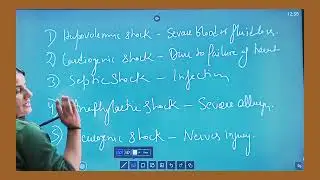 12:55
1) Hypovolemic shock - Severe blood or fluid loss.
2) Cardiogenic shock - Due to failure of heart
3) Septic shock - Infection
4) shock - Severe allergy.
shock - Nerves injury.